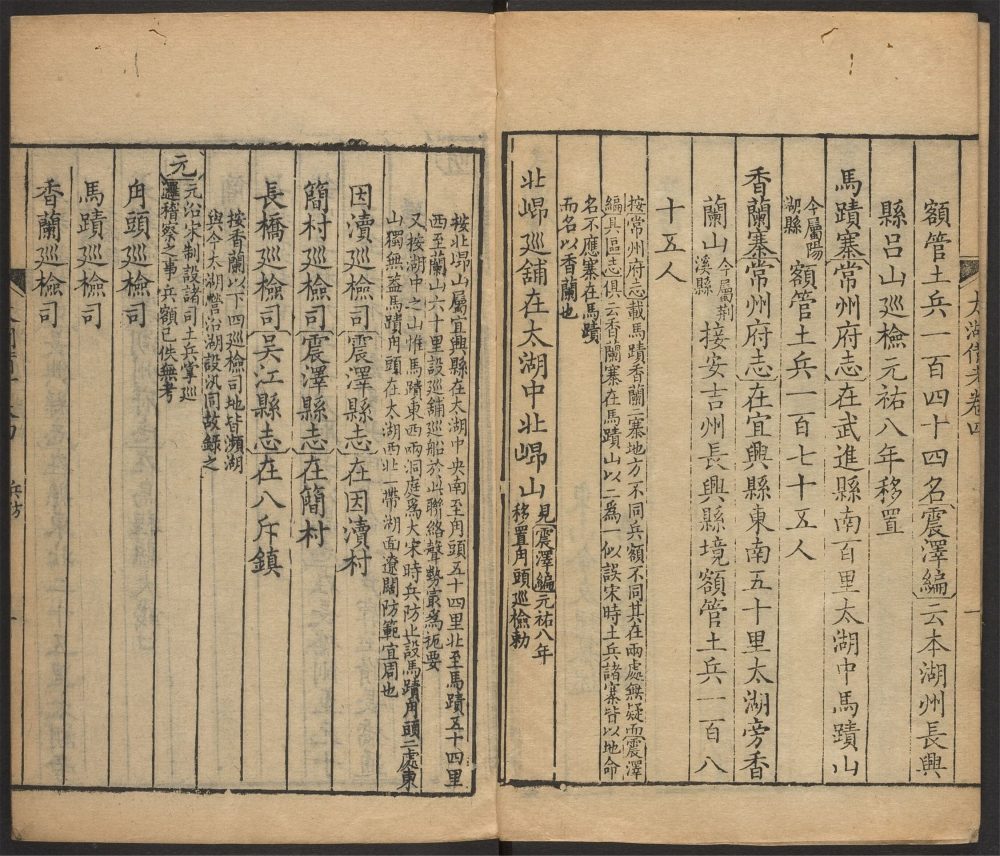 額管土兵一百四十四名震澤編云本湖州長興
縣呂山廵檢元祐八年移置
馬蹟寨常州府志在武進縣南百里太湖中馬蹟山
今屬陽
湖縣
額管土兵一百七十五人
香蘭寨常州府志在宜興縣東南五十里太湖旁香
蘭山
今屬荆
溪縣
接安吉州長興縣境額管土兵一百八
十五人
按常州府志載馬蹟香蘭二寨地方不同兵額不同其在兩處無疑而震澤
編具區志俱云香蘭寨在馬蹟山以二為一似誤宋時土兵諸寨皆以地命
名不應寨在馬蹟
而名以香蘭也
北㟎廵舖在太湖中北㟎山
見震澤編元祐八年
移置甪頭廵檢勅
按北㟎山屬宜興縣在太湖中央南至甪頭五十四里北至馬蹟五十四里
西至蘭山六十里設廵舖廵船於此聯絡聲勢最為扼要
又按湖中之山惟馬蹟東西兩洞庭為大宋時兵防止設馬蹟甪頭二處東
山獨無葢馬蹟甪頭在太湖西北一帶湖面遼闊防範宜周也
因瀆廵檢司震澤縣志在因瀆村
簡村廵檢司震澤縣志在簡村
長橋廵檢司吳江縣志在八斥鎮
按香蘭以下四廵檢司地皆瀕湖
與今太湖營沿湖設汛同故錄之
元
元沿宋制設諸司土兵掌廵
邏稽察之事兵額已佚無考
甪頭廵檢司
馬蹟廵檢司
香蘭廵檢司
太湖備考卷四
兵防